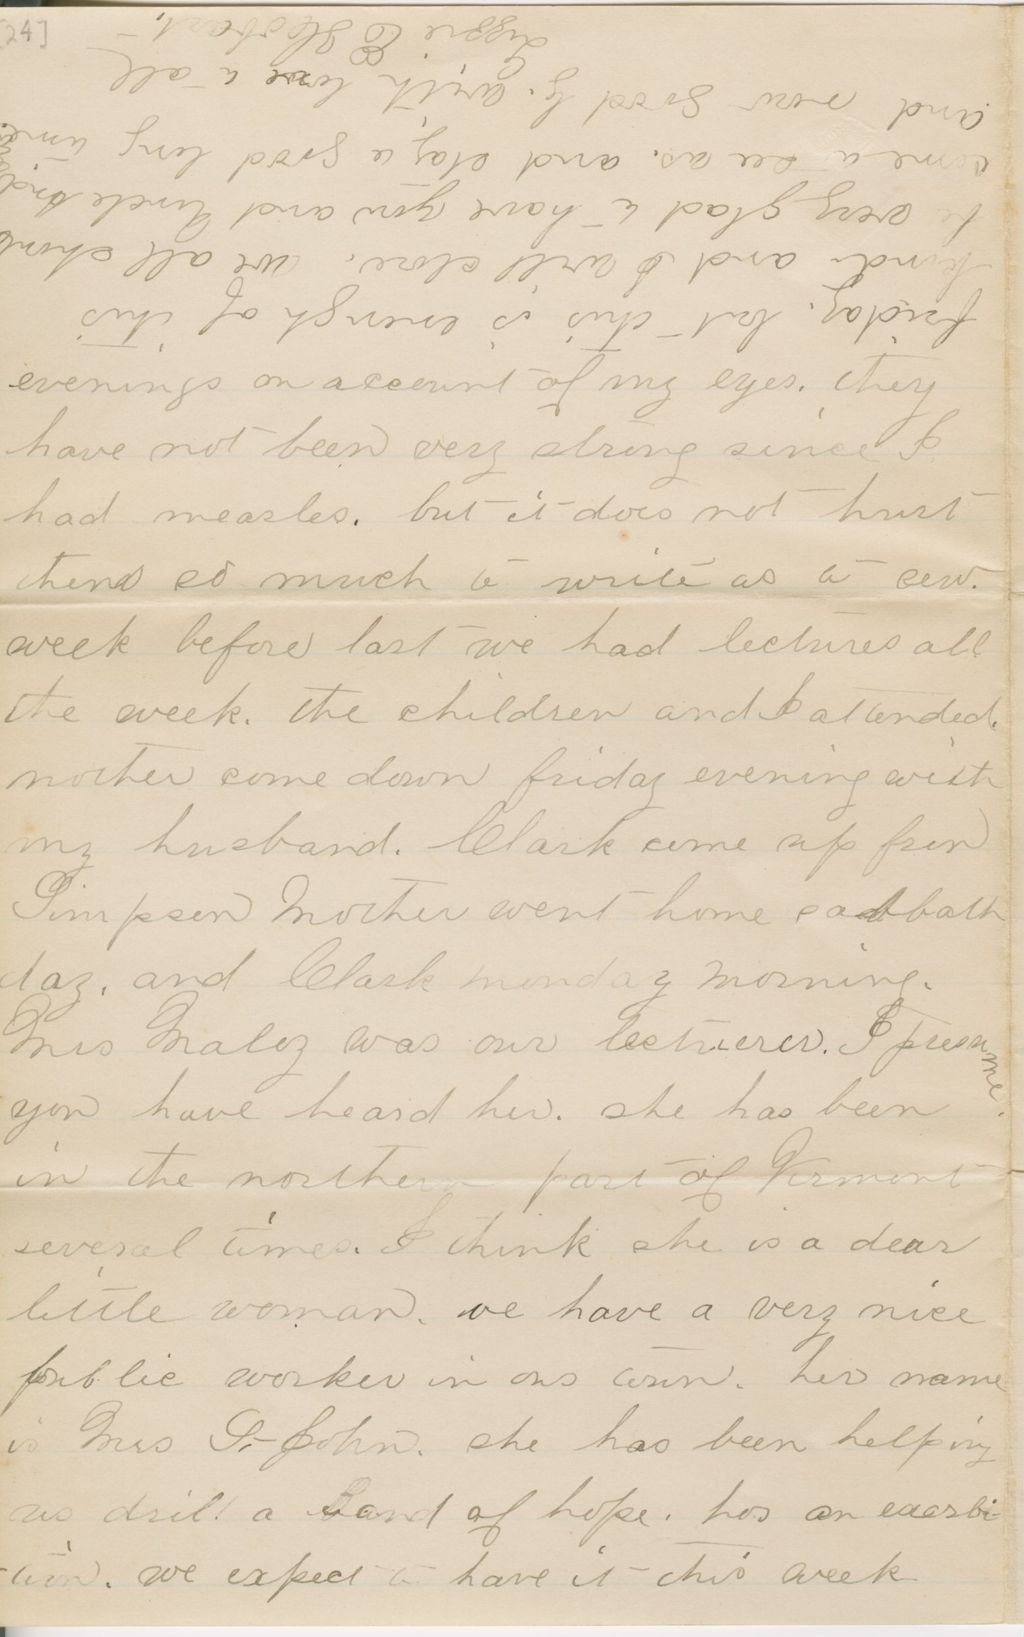 [24]
evenings on account of my eyes. they
have not been very strong since I
had measles. but it does not hurt
them so much to write as to sew.
week before last we had lectures all
the week. the children and I attended.
mother come down friday evening with
my husband. Clark come up from
Simpson Mother went home sabbath
day. and Clark monday morning.
Mrs Maloy was our lecturer. I presume
you have heard her. she has been
in the northern part of Vermont
several times. I think she is a dear
little woman. we have a very nice
public worker in our town. her name
is Mrs St John. she has been helping
us drill a Band of hope. for an exerbi-
tion. we expect to have it this week
friday. but this is enough of this
kind. and I will close. we all should
be very glad to have you and Uncle
come to see us. and stay a good long time.
and now good by. with love to all
Lizzie C Hobart.